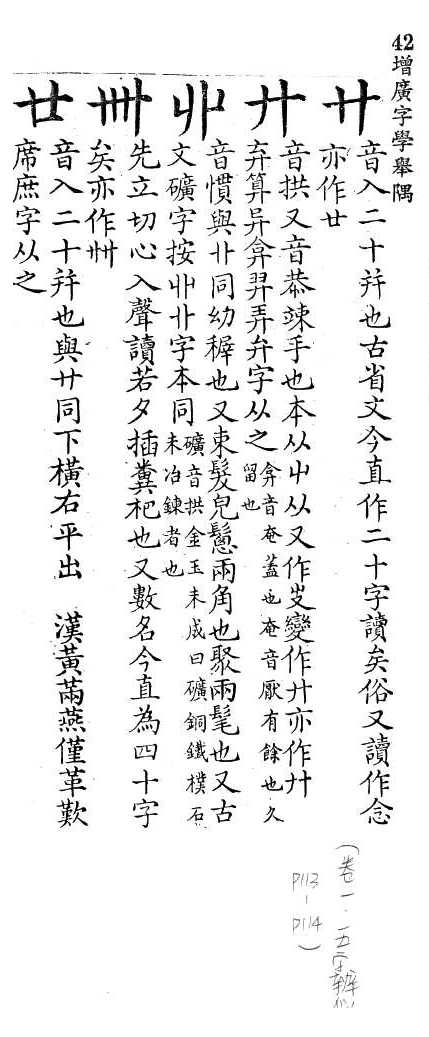 42增廣字學舉隅
廿 音入二十幷也古省文今直作二十字讀矣俗又讀作念
亦作廿
廾 音拱又音恭竦手也本从屮从又作㞢變作廾亦作廾
弃算异弇羿弄弁字从之 弇音奄蓋也奄音厭有餘也久
留也
丱 音慣與卝同幼穉也又束髮皃鬆兩角也聚兩髦也又古
文礦字按丱卝字本同 礦音拱金玉未成曰礦銅鐵樸石
未冶鍊者也
卌 先立切心入聲讀若夕插糞杷也又數名今直為四十字
矣亦作卌
廿 音入二十幷也與廿同下橫右平出 漢黃㒼燕僅革歎
席庶字从之
(卷一.一五二字辨似
P113
-
P114)